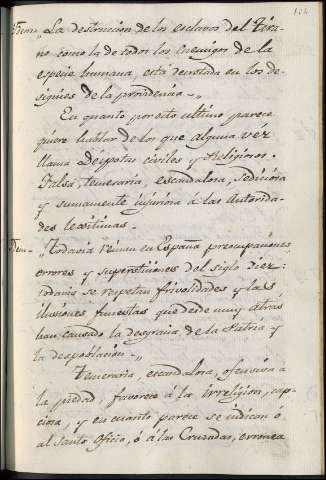 Item „ La destruccion de los esclavos del tira-
no como la de todos los enemigos de la
especie humana, está decretada en los de-
signios de la providencia.„
En quanto por esto ultimo parece
quiere hablar de los que alguna vez
llama Despotas civiles y Religiosos.
Falsa, temeraria, escandalosa, sediciosa
y sumamente injuriosa á las Autorida-
des lexitimas.-
Item- „Todavia reinan en España preocupaciones,
errores y supersticiones del siglo diez:
todavia se respetan frivolidades y las
ilusiones funestas que desde muy atrás
han causado la desgracia de la Patria y
la despoblacion.-„
Temeraria, escandalosa, ofensiva á
la piedad, favorece á la irreligion, cap-
ciosa, y en cuanto parece se indican ó
al Santo Oficio, ó á las Cruzadas, erronea